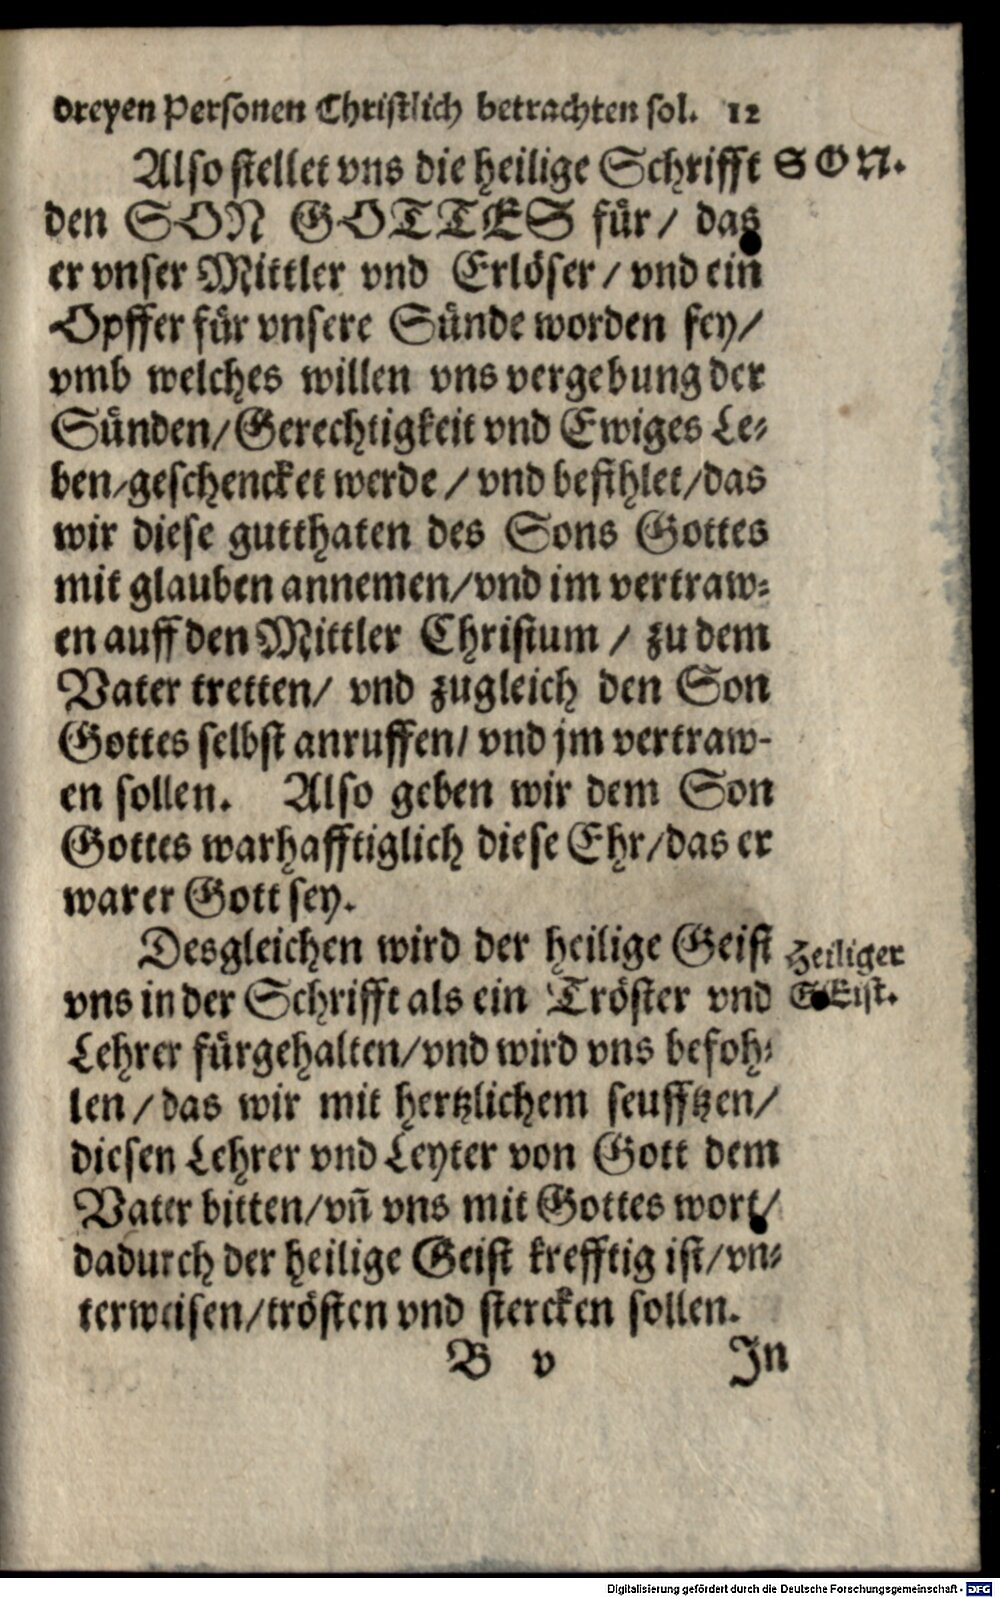 dreyen Personen Christlich betrachten sol. 12
Also stellet vns die heilige Schrifft
SON.
den SON GOTTES für/ das
er vnser Mittler vnd Erlöser/ vnd ein
Opffer für vnsere Sünde worden sey/
vmb welches willen vns vergebung der
Sünden/Gerechtigkeit vnd Ewiges Le-
ben/geschencket werde/ vnd befihlet/das
wir diese gutthaten des Sons Gottes
mit glauben annemen/vnd im vertraw-
en auff den Mittler Christum/ zu dem
Vater tretten/ vnd zugleich den Son
Gottes selbst anruffen/ vnd jm vertraw-
en sollen. Also geben wir dem Son
Gottes warhafftiglich diese Ehr/das er
warer Gott sey.
Desgleichen wird der heilige Geist
Heiliger
vns in der Schrifft als ein Tröster vnd
GEist.
Lehrer fürgehalten/vnd wird vns befoh-
len/das wir mit hertzlichem seufftzen/
diesen Lehrer vnd Leyter von Gott dem
Vater bitten/vñ vns mit Gottes wort/
dadurch der heilige Geist krefftig ist/vn-
terweisen/trösten vnd stercken sollen.
B v
In
Digitalisierung gefördert durch die Deutsche Forschungsgemeinschaft - DFG